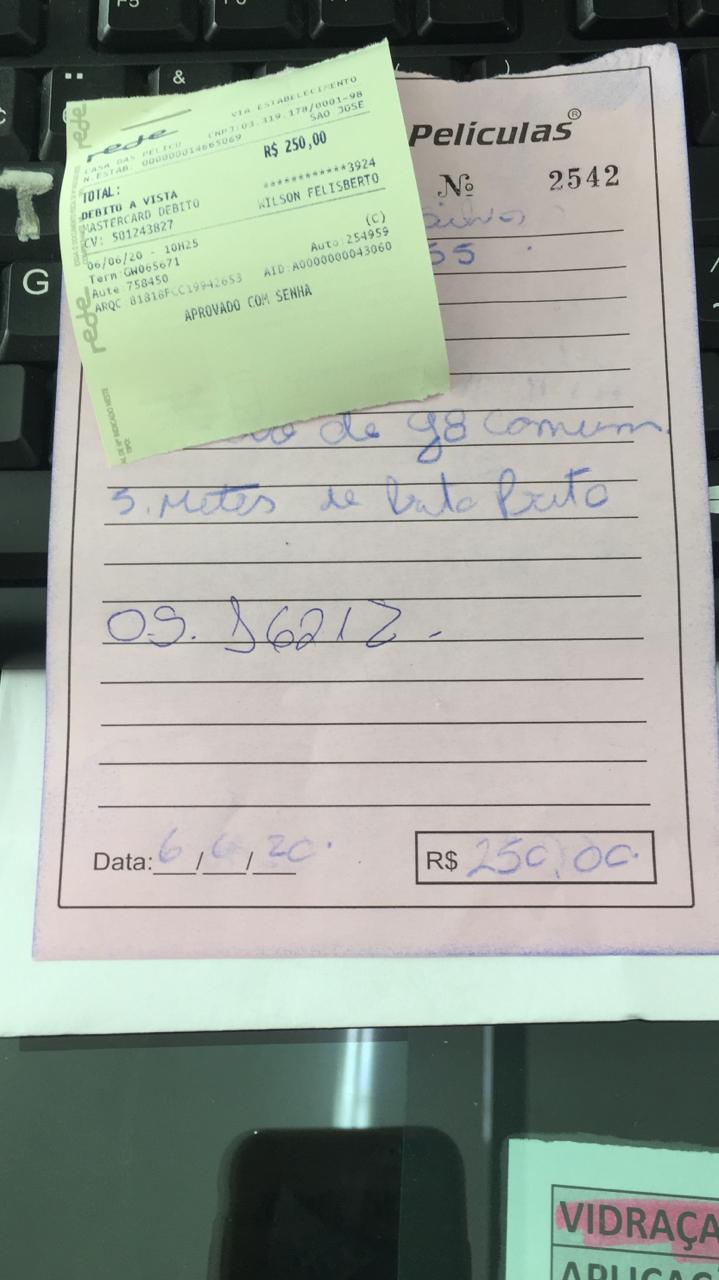 rede
VIA ESTABELECIMENTO
CASA DAS PELICU CNPJ:03.319.178/0001-98
N.ESTAB. 000000014665069 SAO JOSE
TOTAL: R$ 250,00
DEBITO A VISTA ************3924
MASTERCARD DEBITO WILSON FELISBERTO
CV: 501243827
(C)
06/06/20 - 10H25 Auto:254959
Term:GW065671
Aute 758450 AID:A0000000043060
ARQC 81816FCC19942653
APROVADO COM SENHA
rede
rede
Películas®
Nº 2542
55
de G8 comum
5. Metes de Preto
OS. 16212
Data: 6/6/20
R$ 250,00
VIDRAÇA
F5
&
)
G
T